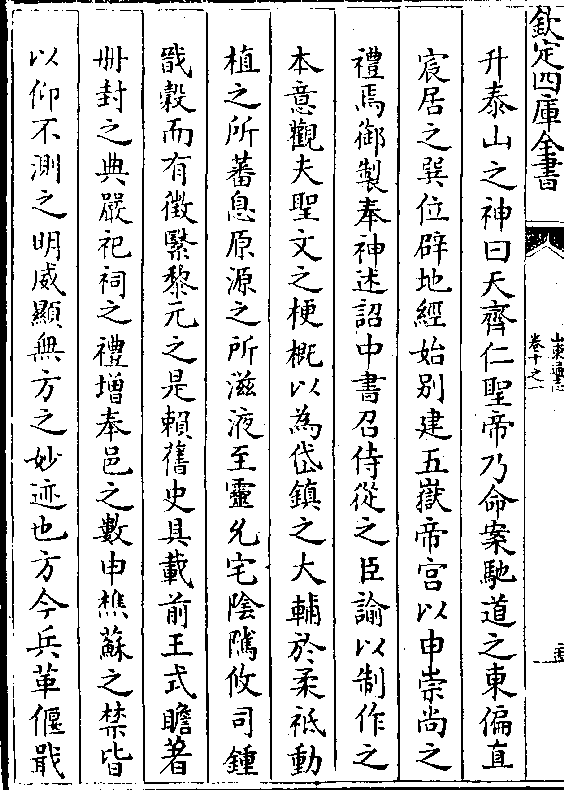 欽定四庫全書
山東通志
卷十之一
升泰山之神曰天齊仁聖帝乃命案馳道之東偏直
宸居之巽位辟地經始别建五嶽帝宫以申崇尚之
禮焉御製奉神述詔中書召侍從之臣諭以制作之
本意觀夫聖文之梗概以為岱鎮之大輔於柔祗動
植之所蕃息原源之所滋液至靈允宅陰隲攸司鍾
戩榖而有徵繄黎元之是賴舊史具載前王式瞻著
冊封之典嚴祀祠之禮增奉邑之數申樵蘇之禁皆
以仰不測之明威顯無方之妙迹也方今兵革偃戢